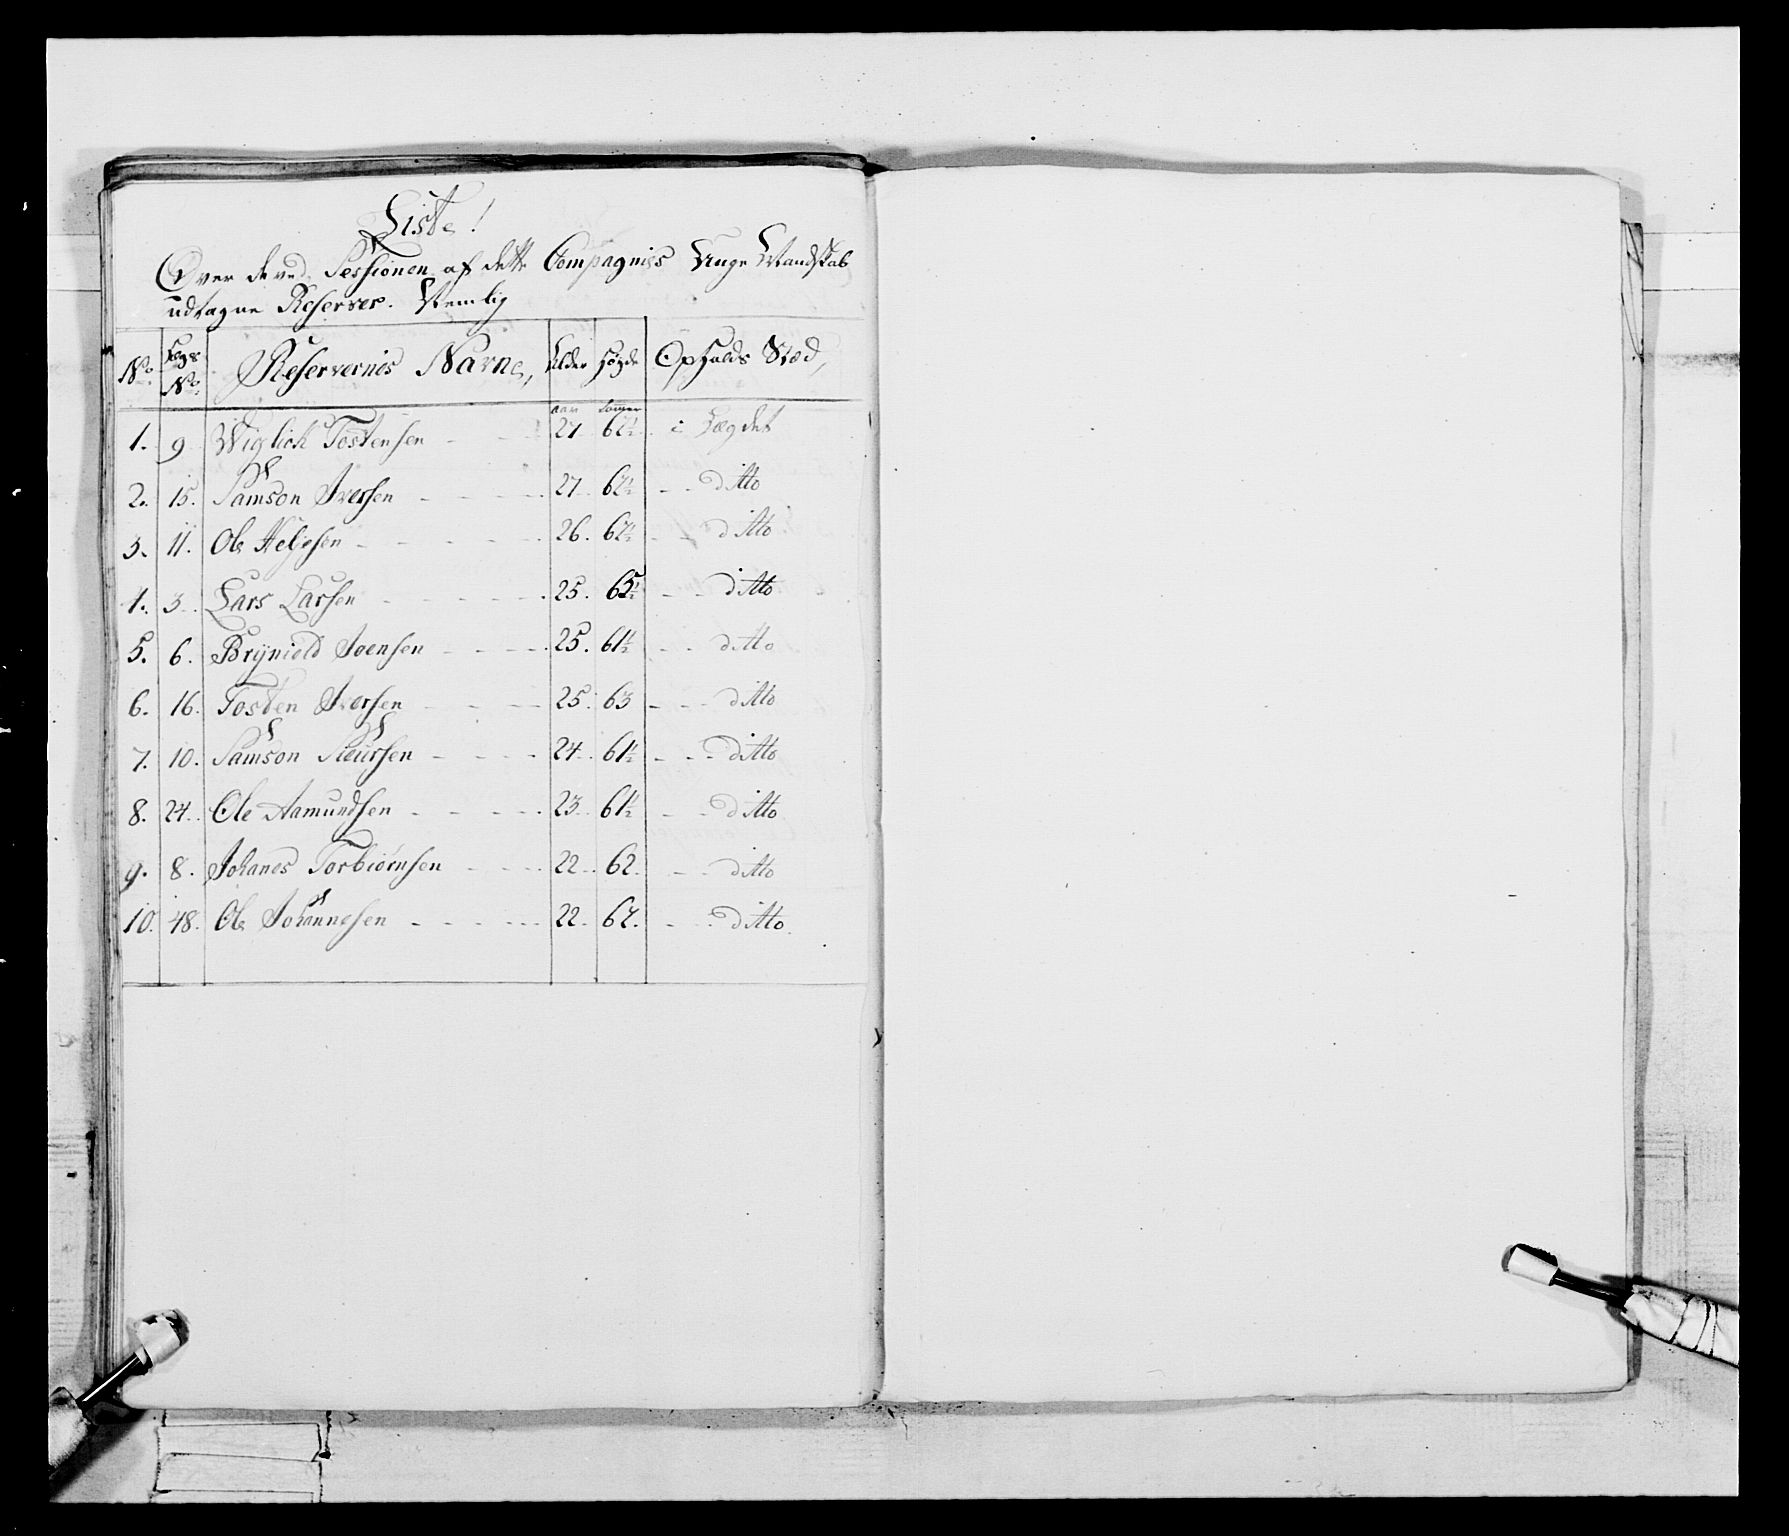 Liste!
Over de ved Sessionen af dette Compagnies Unge Mandskab
udtagne Reserver. Nemlig
No. Lægs No. Reservernes Navne, Alder Høyde Opholds Stæd,
aar tommer
1. 9 Wiglick Tostensen - - 27 62½ i Lægdet
2. 15. Samson Iversen - - - - 27 62½ - - ditto
3. 11. Ole Heljesen - - - - - 26. 62½ - - ditto
4. 3. Lars Larsen - - - - - 25. 65½ - - ditto
5. 6. Brÿnield Joensen - - - - 25. 61½ - - ditto
6. 16. Tosten Iversen - - - - 25. 63 - - - ditto
7. 10. Samson Siursen - - - - 24. 61½ - - - ditto
8. 24. Ole Aamundsen - - - - 23. 61½ - - ditto
9. 8. Johanes Torbiørnsen - - - - 22. 62. - - ditto
10. 48. Ole Johannesen - - - - - 22. 62. - - ditto.